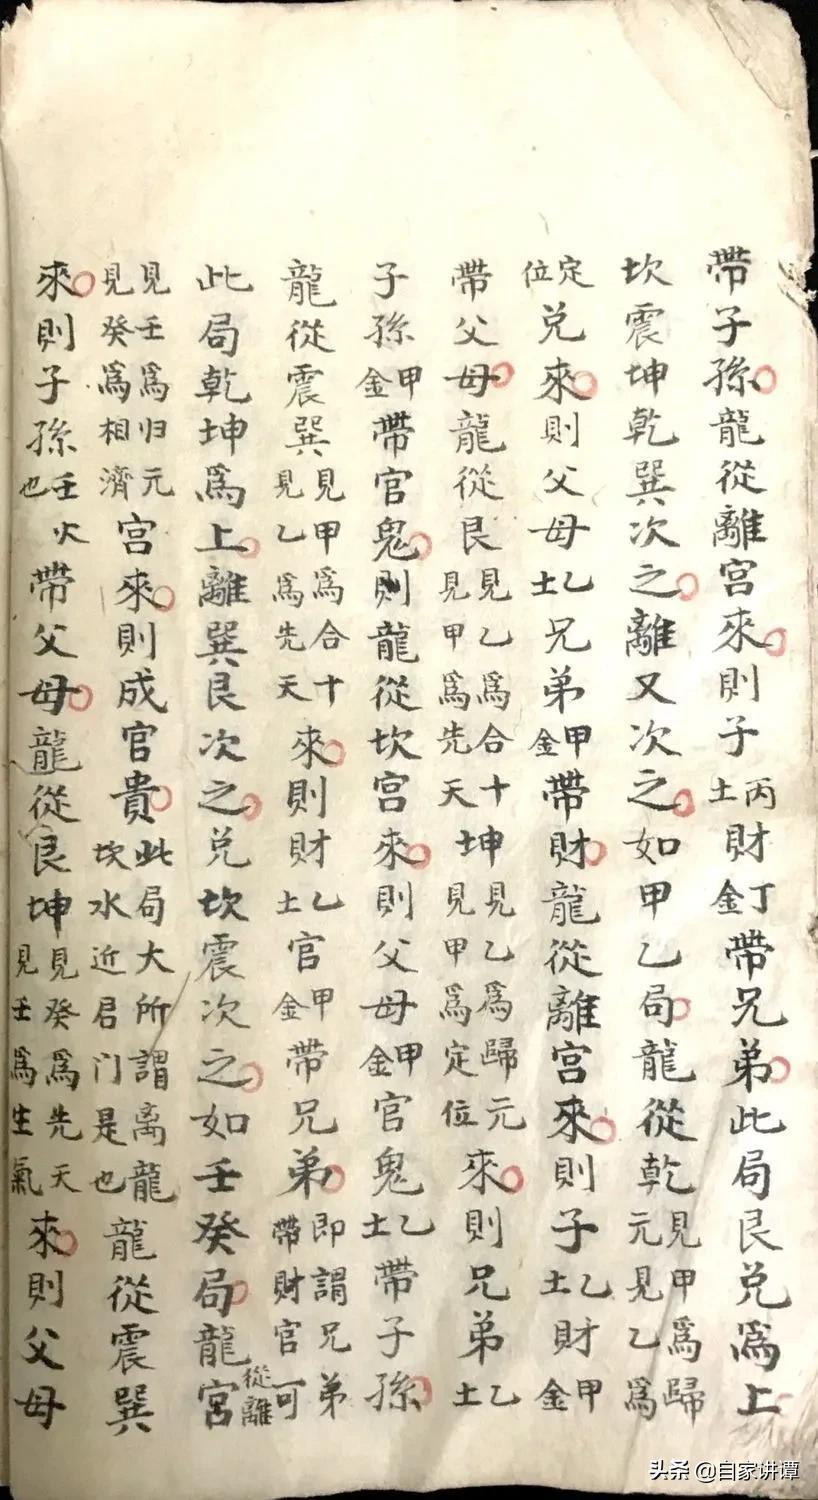 帶子孫龍從離宮來則子丙土財丁金帶兄弟此局艮兌爲上
坎震坤乾巽次之離又次之如甲乙局龍從乾見甲爲歸元見乙爲
定位兌來則父母乙土兄弟甲金帶財龍從離宮來則子乙土財甲金
帶父母龍從艮見乙爲合十見甲爲先天坤見乙爲歸元見甲爲定位來則兄弟乙土
子孫甲金帶官鬼則龍從坎宮來則父母甲金官鬼乙土帶子孫
龍從震巽見甲爲合十見乙爲先天來則財乙土官甲金帶兄弟即謂兄弟帶財官可
此局乾坤爲上離巽艮次之兌坎震次之如壬癸局龍從離宮
見壬爲归元見癸爲相濟宮來則成官貴此局大所謂离龍坎水近君门是也龍從震巽
來則子孫壬火也帶父母龍從艮坤見癸爲先天見壬爲生氣來則父母
头条 @自家讲谭